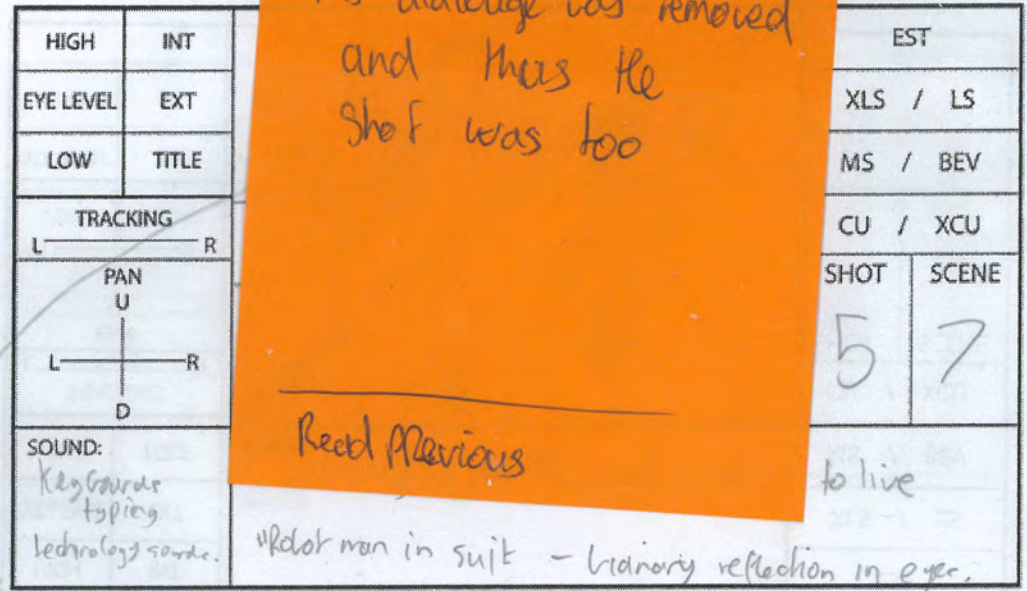 HIGH INT
EYE LEVEL EXT
LOW TITLE
TRACKING
L R
PAN
U
L R
D
SOUND:
Keyboards
typing
technology sounds.
dialogue was removed
and thus the
Shot was too
Read Previous
EST
XLS / LS
MS / BEV
CU / XCU
SHOT SCENE
5 7
to live
"Robot man in suit - binary reflection in eyes.